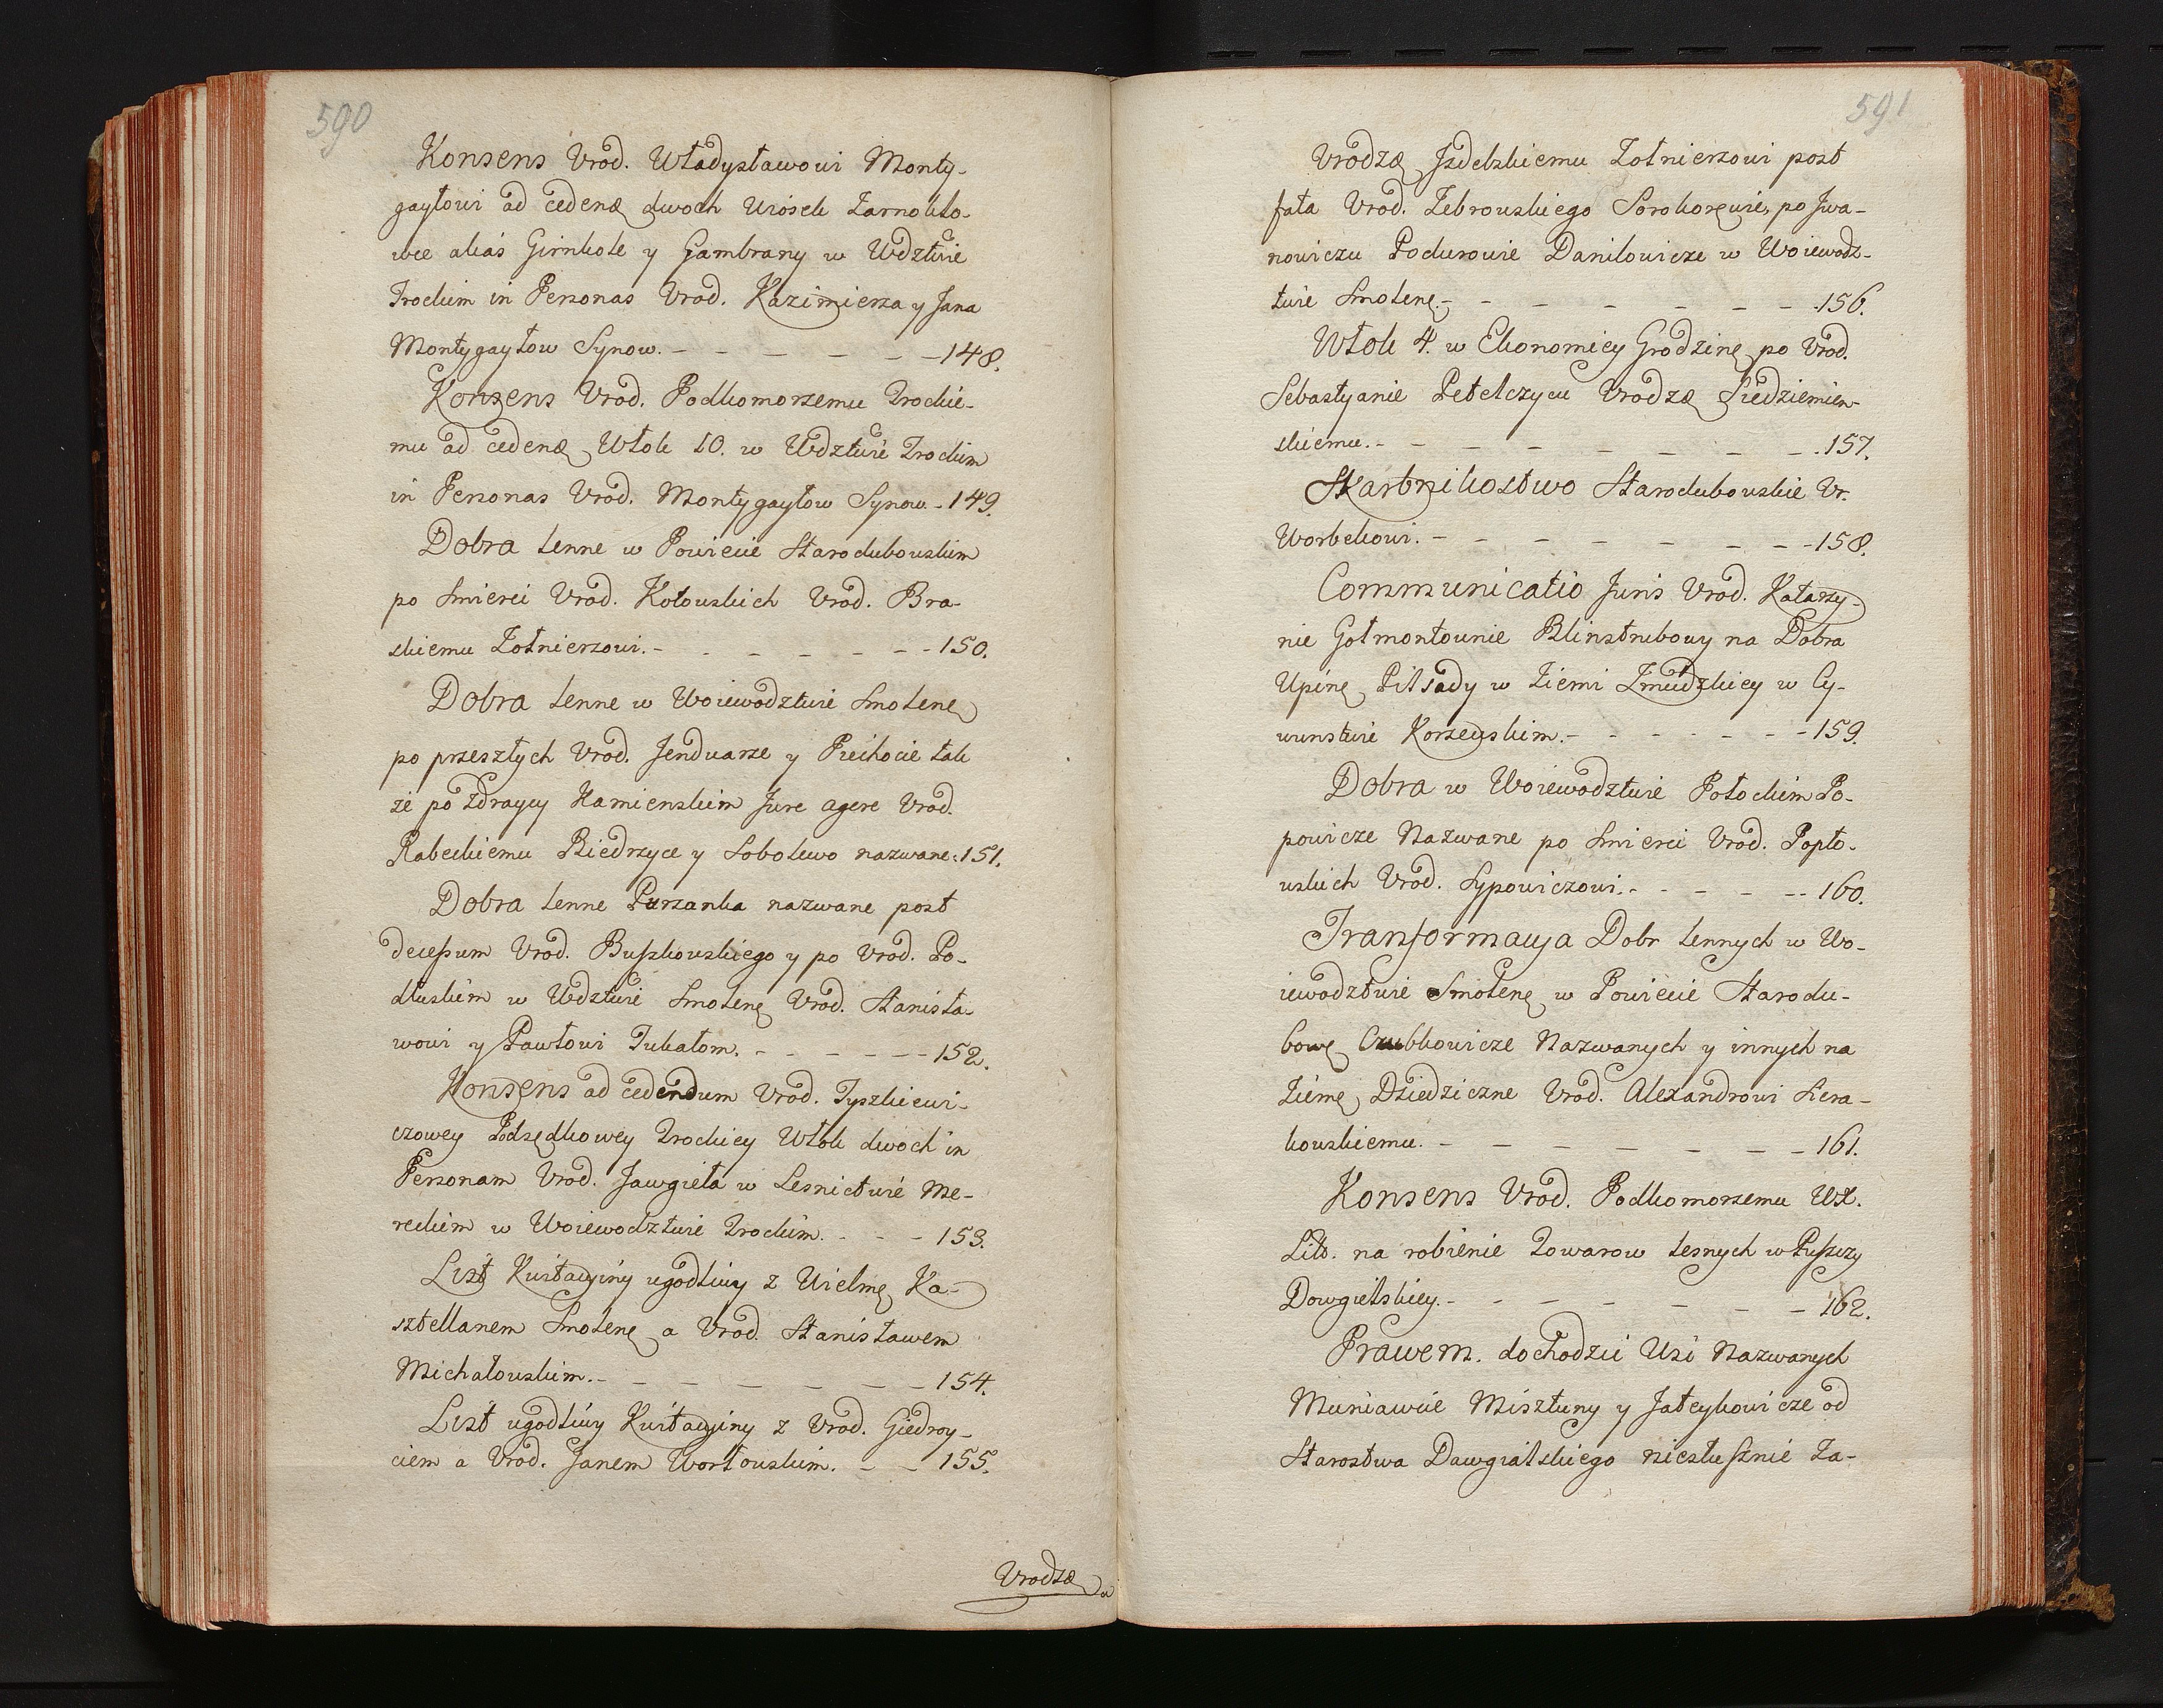 590
Konsens Vrod. Władysławowi Monty-
gayłowi ad cedenę dwoch Wiosek Żarnokło-
wce aliás Girnkole y Gambrany w Wdztwie
Trockim in Personas Vrod. Kazimierza y Jana
Montygayłow Synow. - - - - - - - 148.
Konsens Vrod. Podkomorzemu Trockie-
mu ad cedenę Włok 10. w Wdztwie Trockim
in Personas Vrod. Montygayłow Synow. - 149.
Dobra Lenne w Powiecie Starodubowskim
po śmierci Vrod. Kołowskich Vrod. Bra-
skiemu Żołnierzowi. - - - - - - - 150.
Dobra Lenne w Woiewodztwie Smolenę
po przeszłych Vrod. Jenduarze y Piechocie tak
że po Zdraycy Kamienskim Jure agere Vrod.
Rabeckiemu Biedrzyce y Sobolewo nazwane. 151.
Dobra Lenne Purzanka nazwane post
decessum Vrod. Buszkowskiego y po Vrod. Po-
dłuskim w Wdztwie Smolenę Vrod. Stanisła-
wowi y Pawłowi Tukałom. - - - - - - 152.
Konsens ad cedendum Vrod. Tyszkiewi-
czowey Podsędkowey Trockiey Włok dwoch in
Personam Vrod. Jawgieła w Lesnictwie Me-
reckim w Woiewodztwie Trockim. - - - 153.
List Kwitacyiny ugodliwy z Wielmę Ka-
sztellanem Smolenę a Vrod. Stanisławem
Michałowskim. - - - - - - - 154.
List ugodliwy Kwitacyiny z Vrod. Giedroy-
ciem a Vrod. Janem Worłowskim. - - 155.
Vrodzę
591
Vrodzę Jzdebskiemu Żołnierzowi post
fata Vrod. Zebrowskiego Sorokoręwie, po Jwa-
nowiczu Podurowie Daniłowicze w Woiewodz-
twie Smolenę. - - - - - - - 156.
Włok 4. w Ekonomiey Grodzinę po Vrod.
Sebastyanie Petelczycu Vrodzę Siedziemien-
skiemu. - - - - - - - 157.
Skarbnikostwo Starodubowskie Vr.
Worbekowi. - - - - - - - 158.
Communicatio Juris Vrod. Katarzy-
nie Gołmontownie Blinstrubowy na Dobra
Upinę Pilsady w Ziemi Zmudzkiey w Cy-
wunstwie Korzewskim. - - - - - - 159.
Dobra w Woiewodztwie Połockim Po-
powicze Nazwane po śmierci Vrod. Popło-
wskich Vrod. Sypowiczowi. - - - - - 160.
Transformacya Dobr Lennych w Wo-
iewodztwie Smolenę w Powiecie Starodu-
bowę Czubkowicze Nazwanych y innych na
Ziemę Dziedziczne Vrod. Alexandrowi Siera-
kowskiemu. - - - - - - - 161.
Konsens Vrod. Podkomorzemu WX.
Litt. na robienie Towarow Lesnych w Puszczy
Dowgielskiey. - - - - - - - 162.
Prawem dochodzić Wsi Nazwanych
Muniawcie Misztuny y Jateykowicze od
Starostwa Dawgialskiego niesłusznie Za-